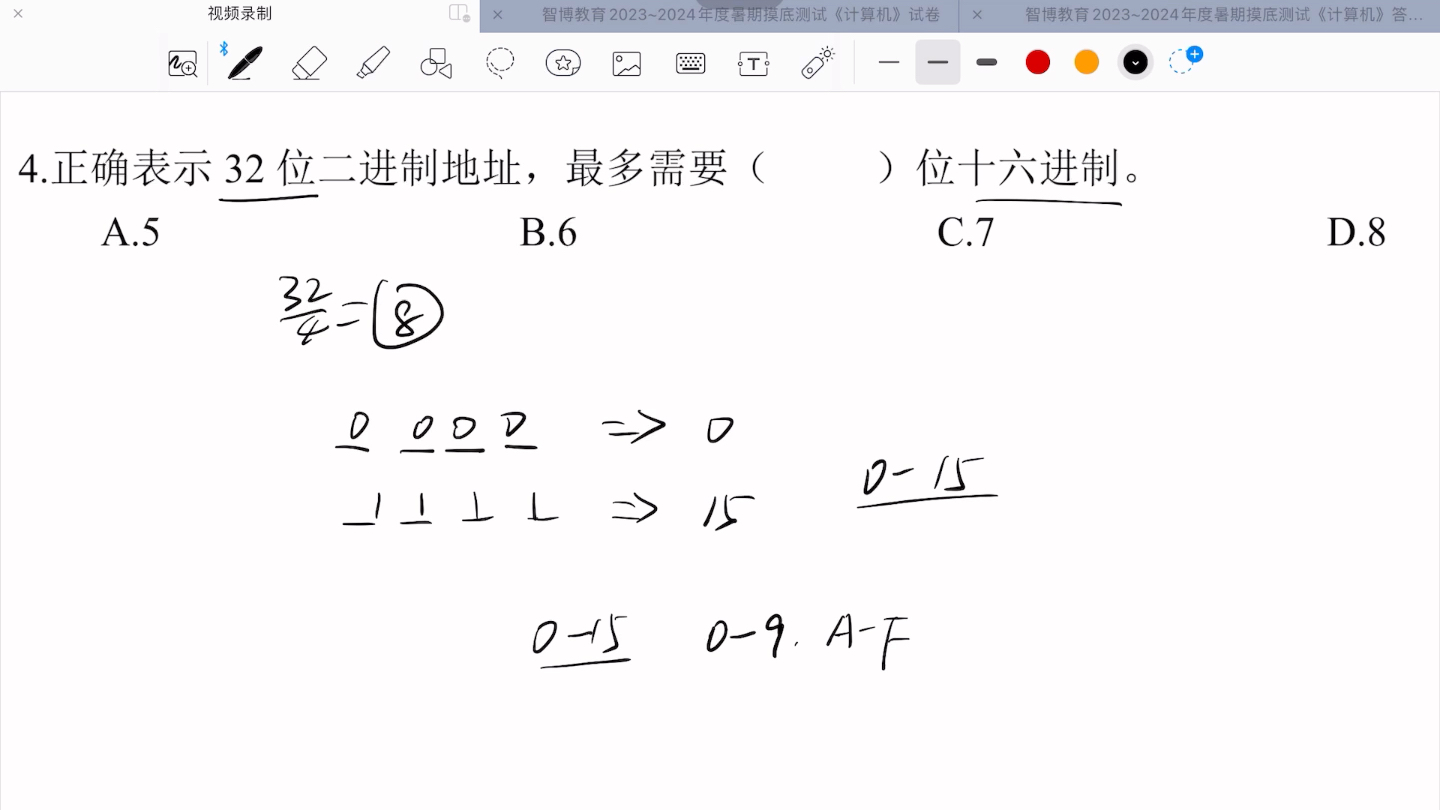 视频录制 智博教育2023~2024年度暑期摸底测试《计算机》试卷 智博教育2023~2024年度暑期摸底测试《计算机》答...
4.正确表示 32 位二进制地址，最多需要（ ）位十六进制。
A.5 B.6 C.7 D.8
32/4=8
0 0 0 0 => 0
0-15
1 1 1 1 => 15
0-15 0-9. A-F